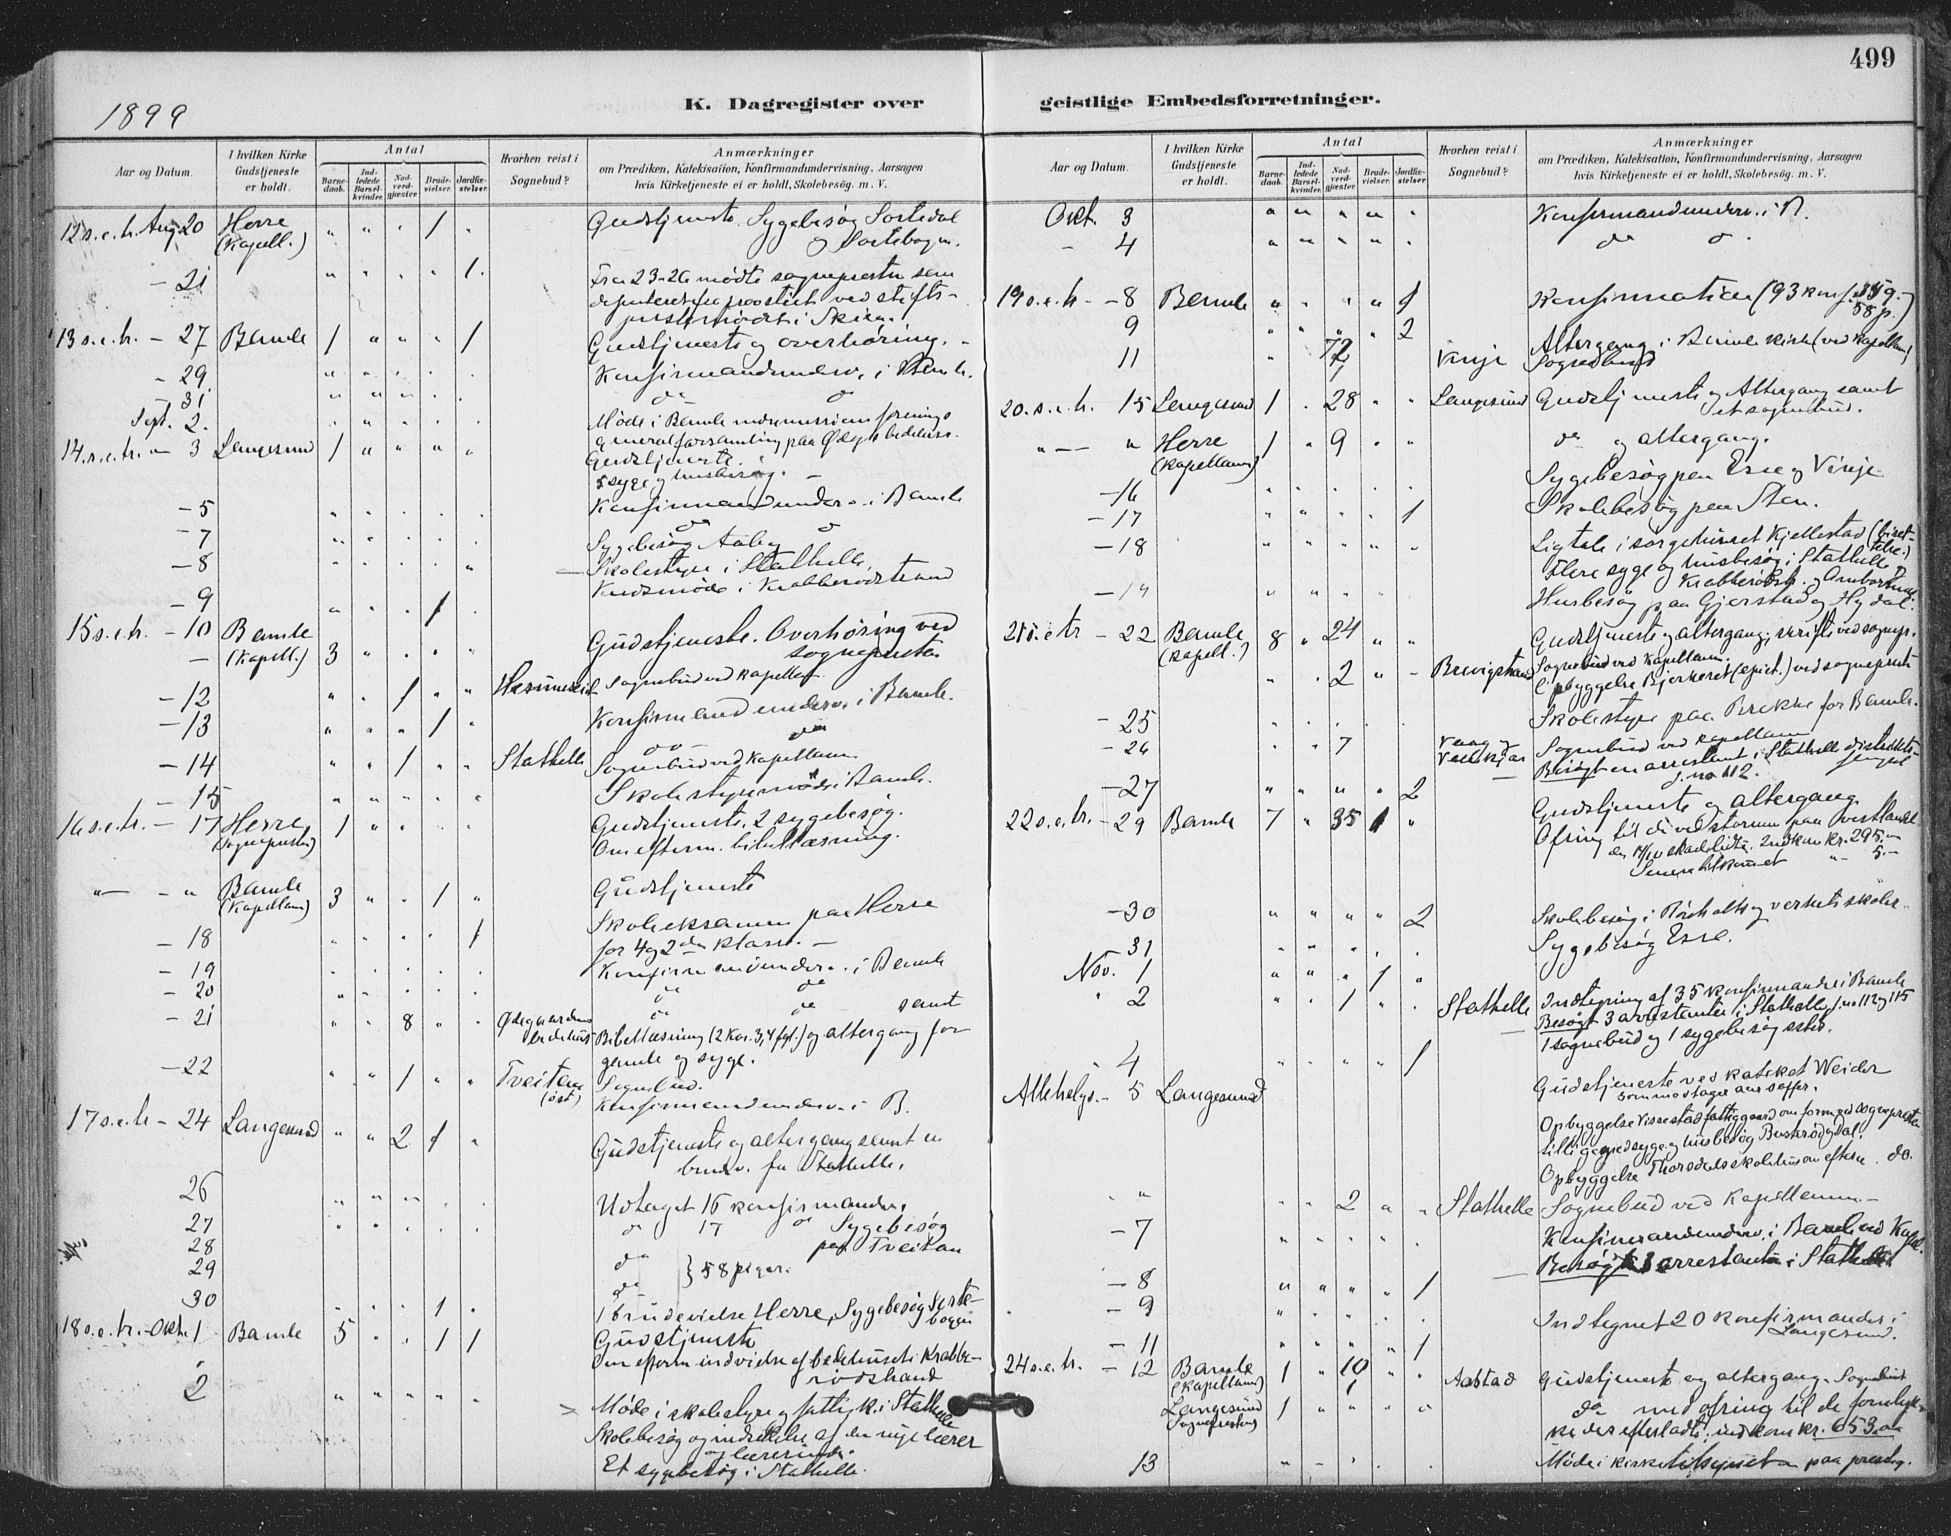 499
1899
K. Dagregister over
geistlige Embedsforretninger.
Aar og Datum.
I hvilken Kirke Gudstjeneste er holdt.
Antal
Barnedaab.
Indledede Barselkvinder.
Nadverdgjæster
Brudevielser.
Jordfæstelser.
Hvorhen reist i Sognebud?
Anmærkninger
om Prædiken, Katekisation, Konfirmandundervisning, Aarsagen
hvis Kirketjeneste ei er holdt, Skolebesøg. m. V.
12 s.e.tr. Aug 20 Herre (Kapell.) " " " 1 " Gudstjeneste. Sygebesøg Sortedal
og Sortebogen.
- 21 " " " " 1. Fra 23-26 mødte sognepresten som
deputeret fra provstiet ved stifts-
prestemødet i Skien.
13 s.e.tr. - 27 Bamle 1 " " " 1 Gudstjeneste og overhøring.
- 29 " " " " " Konfirmandunderv. i Bamle.
- 31 " " " " " do do
Sept. 2. " " " " " Møde i Bamle indremissionsforenings
generalforsamling paa Ødeg. bedehus.
14. s.e.tr. - 3 Langesund 1 " " " " Gudstjeneste.
5 syge og husbesøg.
- 5 Konfirmandunderv. i Bamle
- 7 do do
Sygebesøg Aaby
- 8 Skolestyre i Stathelle.
Kredsmøde i Krabberødstrand
- 9 " " " 1 "
15 s.e.tr. - 10 Bamle (Kapell.) 3 " " " " Gudstjeneste. Overhøring ved
sognepresten
- 12 " " 1 " " Sognebud ved kapellan
- 13 " " " 1 " Konfirmandunderv. i Bamle.
do - do
- 14 " " 1 " " Stathelle Sognebud ved Kapellanen
- 15 " " " " " Skolestyremøde i Bamle.
16 s.e.tr. - 17 Herre (Sognepresten) 1 " " " " Gudstjeneste, 2 sygebesøg.
Om efterm. bibellæsning.
" - " Bamle (Kapellanen) 3 " " 1 " Gudstjeneste
- 18 " " " " 1 Skoleeksamen paa Herre
for 4 og 2den klasse. -
- 19 Konfirmandunderv. i Bamle
- 20 do do
- 21 " " 8 " " Ødegaardens bedehus do do samt
Bibellæsning (2 Kor. 3, 4 fgl.) og altergang for
gamle og syge.
- 22 " " 1 " " Tveiten (øst) Sognebud.
Konfirmandunderv. i B.
17 s.e.tr - 24 Langesund " " 2 1 " Gudstjeneste og altergang samt en
brudev. fra Stathelle.
26 " " " " " Udtaget 16 konfirmander.
27 " " " " " do 17 do Sygebesøg
paa Tveitan
28 do
29 do } 58 piger.
30 " " " 1 " 1 brudevielse Herre, Sygebesøg Sorte-
bogen
18 s.e.tr. - Okt. 1 Bamle 5 " " 1 1 Gudstjeneste
Om efterm. indvielse af bedehuset i Krabbe-
rødstrand
2 " " " " " Møde i skolestyre og fattigk. i Stathelle
Skolebesøg og indsættelse af den nye lærer
og lærerinde.
Et sygebesøg i Stathelle.
Aar og Datum.
I hvilken Kirke Gudstjeneste er holdt.
Antal
Barnedaab.
Indledede Barselkvinder.
Nadverdgjæster
Brudevielser.
Jordfæstelser.
Hvorhen reist i Sognebud?
Anmærkninger
om Prædiken, Katekisation, Konfirmandundervisning, Aarsagen
hvis Kirketjeneste ei er holdt, Skolebesøg. m. V.
Okt. 3 " " " " " Konfirmandunderv. i B.
- 4 " " " " " do do.
19 s.e.tr. - 8 Bamle " " " " 1 Konfirmation (93 konf. 35 g. - 58 p.)
9 " " " " 2
11 72 1 Vinje Altergang i Bamle kirke (ved Kapellanen)
Sognebud
20. s.e.tr. 15 Langesund 1 . 28 " " Langesund Gudstjeneste og Altergang samt
et sognebud.
" - " Herre (Kapellanen) 1 " 9 " " do og altergang.
Sygebesøg paa Esse og Vinje
- 16 Skolebesøg paa Sten.
- 17 " " " " 1
- 18 " " " " " Ligtale i sørgehuset Kjellestad
Flere syge og husbesøg i Stathelle
Krabberødst. og
- 19 " " " " " Husbesøg paa Gjerstad og Hydal.
21 s.e.tr - 22 Bamle (Kapell.) 8 " 24 " " Gudstjeneste og altergang, skrift. ved sognepr.
" . 2 " - Brevigstrand Sognebud ved Kapellanen.
Opbyggelse Bjerkeset ved sognepresten
- 25 Skolestyre paa Brekke for Bamle.
- 26 " . 7 Sognebud ved kapellanen
Besøgt en arrestant i Stathelle distrikts-
fengsel j. no 112.
- 27 " " " " 2
22 s.e.tr. - 29 Bamle 7 " 35 1 " Gudstjeneste og altergang.
Ofring til de ved stormen paa vestlandet
den 14/10 skadelidte. Indkom kr. 295.-
Senere tilkommet " 5.-
- 30 " " " " 2 Skolebesøg i Rørholts og verkets skoler.
31 Sygebesøg Esse.
Nov. 1 " " " 1 "
" 2 " " 1 " . Stathelle Indtegning af 35 konfirmander i Bamle
Besøgt 3 arrestanter i Stathelle j. no 112 og 115
1 sognebud og 1 sygebesøg sted.
4 " " " " 1
Allehelgs. - 5 Langesund Gudstjeneste ved kateket Weider
som modtager aarsoffer.
Opbyggelse Vissestad fattiggaard om form. ved sognepresten
tilligemed syge og husbesøg
Opbyggelse Thorsdals skolehus om efterm. do.
" " " " 2 " " Stathelle Sognebud ved Kapellanen. -
- 7 Konfirmandunderv. i Bamle ved Kapel.
Besøgt arrestanten i Stathelle
- 8 " " " " 1
- 9 Indtegnet 20 konfirmander i
Langesund.
- 11 " " " " 1
24 s.e.tr. - 12 Bamle (Kapellanen) 1 " 10 1 " " Aastad Gudstjeneste og altergang. Sognebud
Langesund Sognepresten 1 " " " " do med ofring til de forulyk-
kedes efterladte, indkom kr. 653.00
13 Møde i kirketilsynet paa prestg.